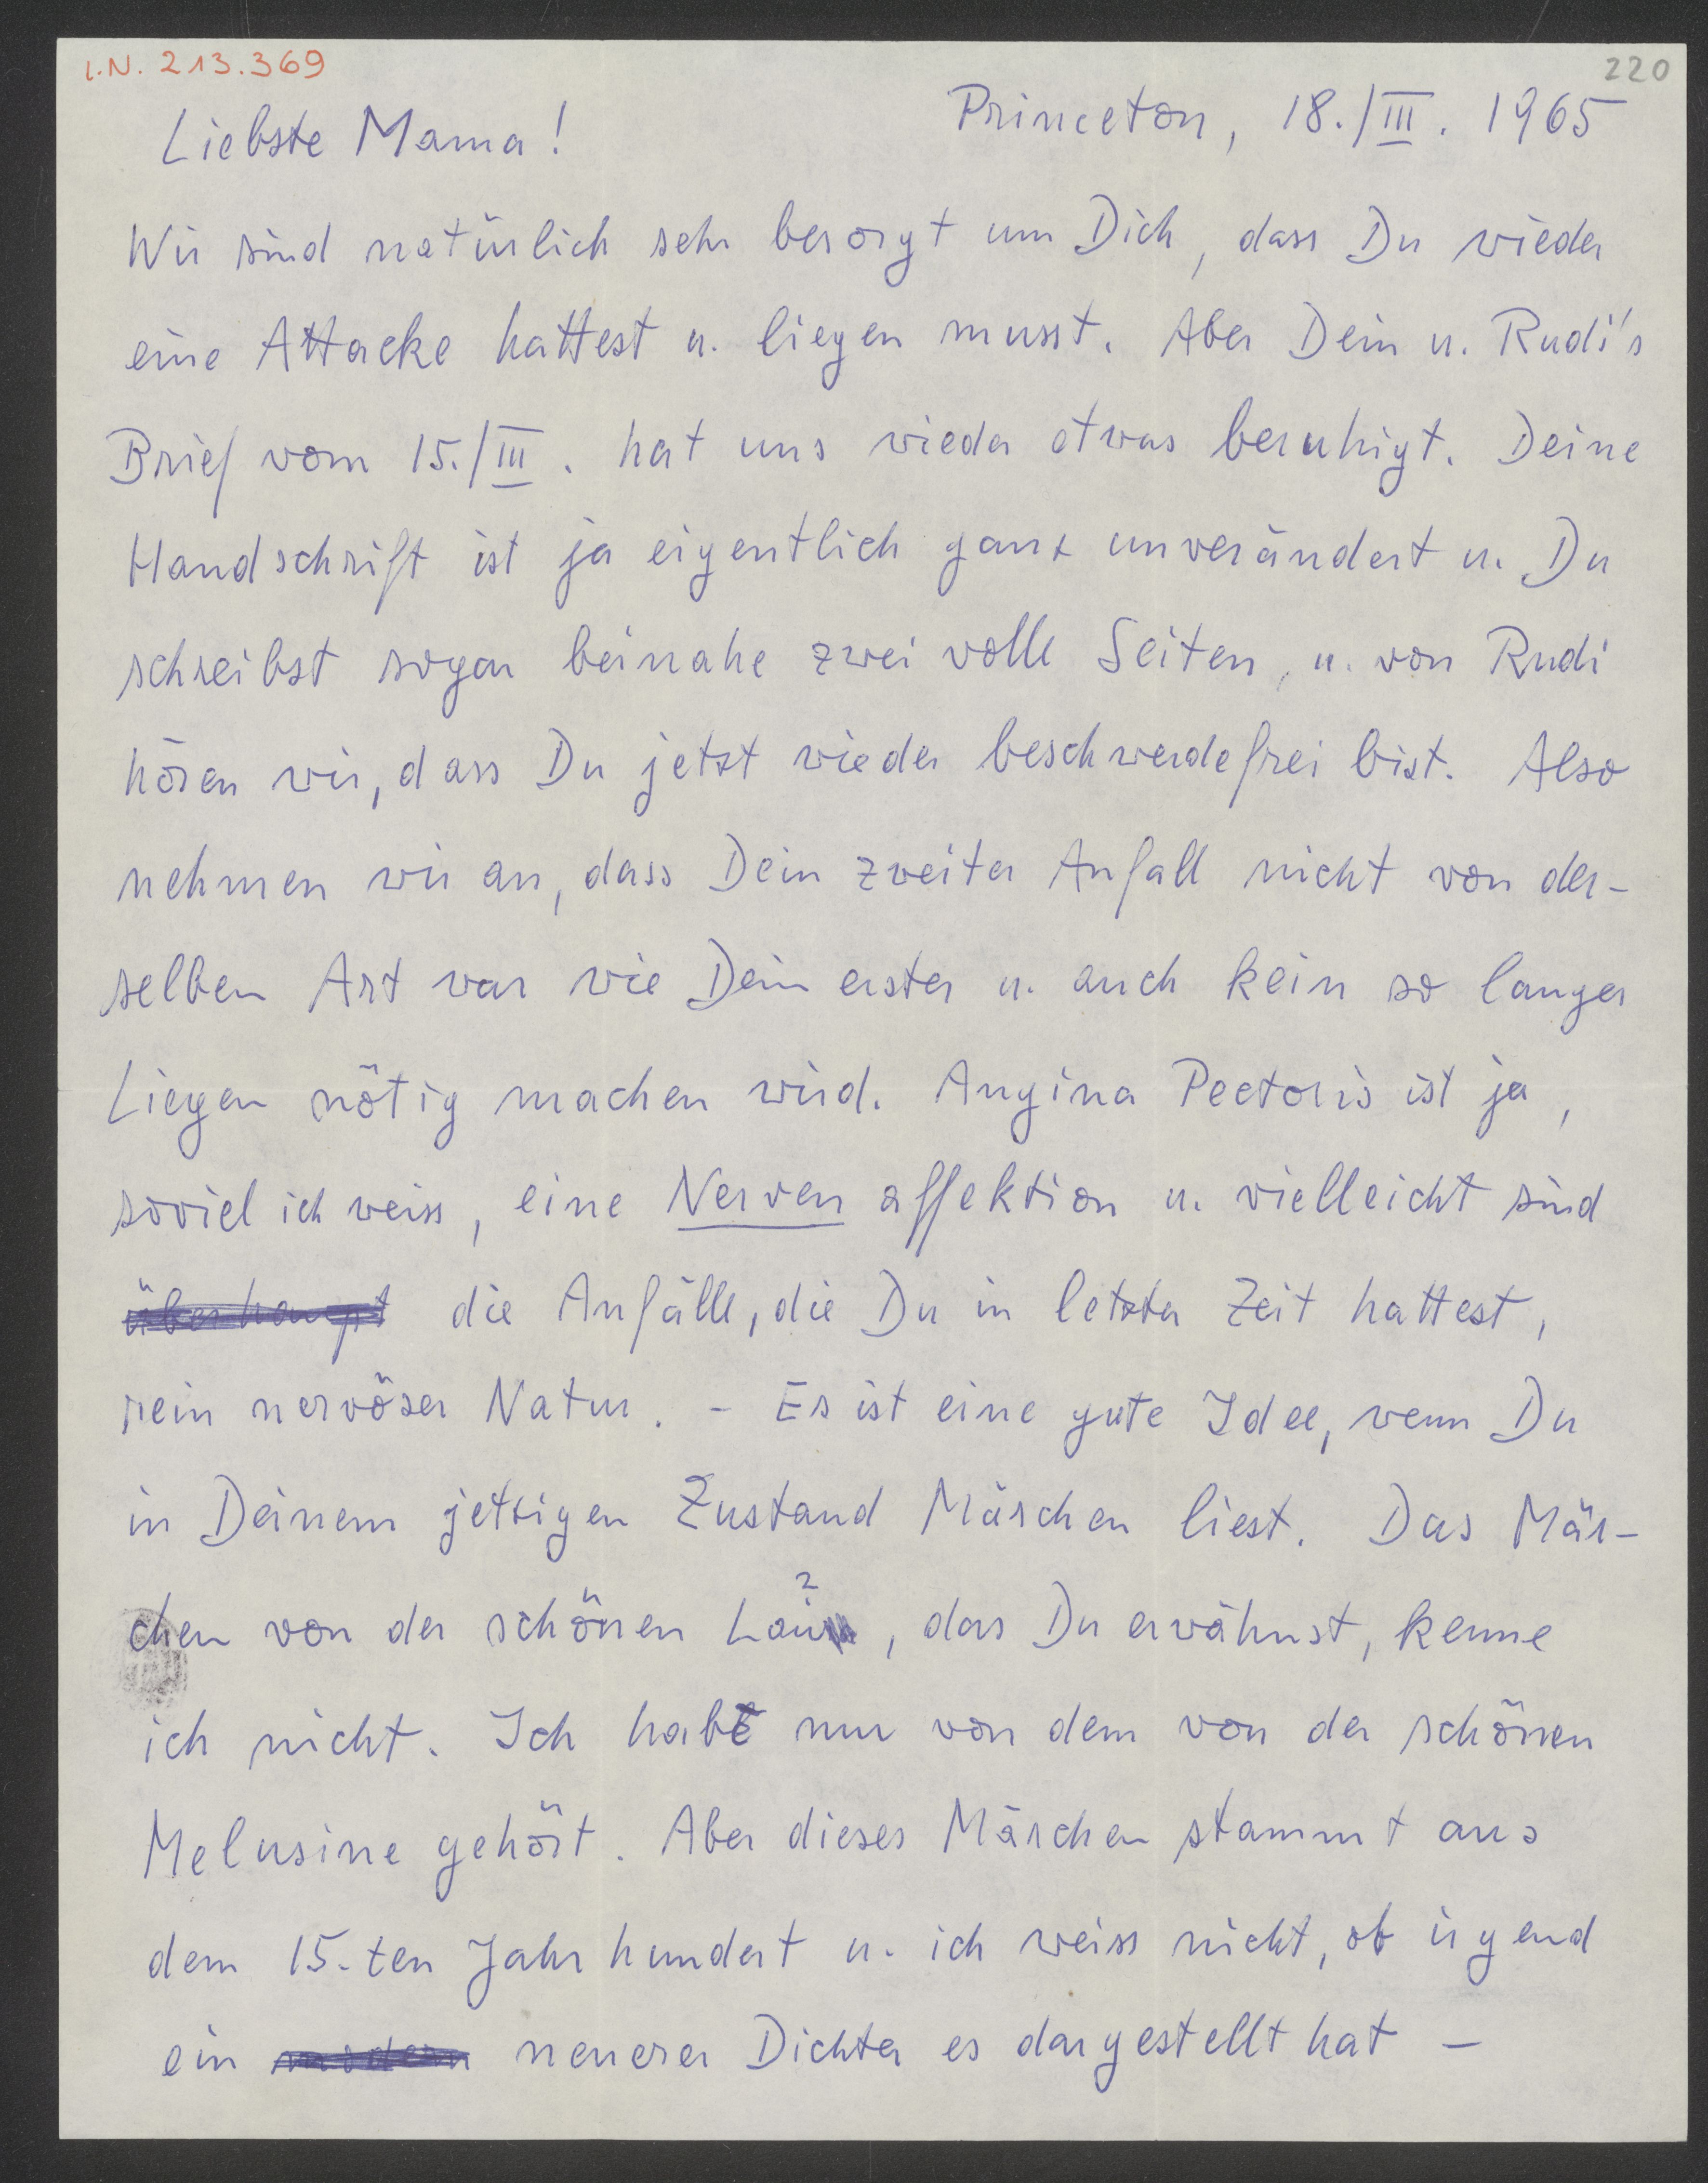 I.N. 213.369
220
Princeton, 18./III. 1965
Liebste Mama!
Wir sind natürlich sehr besorgt um Dich, dass Du wieder
eine Attacke hattest u. liegen musst. Aber Dein u. Rudi's
Brief vom 15./III. hat uns wieder etwas beruhigt. Deine
Handschrift ist ja eigentlich ganz unverändert u. Du
schreibst sogar beinahe zwei volle Seiten, u. von Rudi
hören wir, dass Du jetzt wieder beschwerdefrei bist. Also
nehmen wir an, dass Dein zweiter Anfall nicht von der-
selben Art war wie Dein erster u. auch kein so langes
Liegen nötig machen wird. Angina Pectoris ist ja,
soviel ich weiss, eine Nerven affektion u. vielleicht sind
überhaupt die Anfälle, die Du in letzter Zeit hattest,
rein nervöser Natur. - Es ist eine gute Idee, wenn Du
in Deinem jetzigen Zustand Märchen liest. Das Mär-
chen von der schönen , das Du erwähnst, kenne
ich nicht. Ich habe nur von dem von der schönen
Melusine gehört. Aber dieses Märchen stammt aus
dem 15-ten Jahrhundert u. ich weiss nicht, ob irgend
ein modern neuerer Dichter es dargestellt hat -